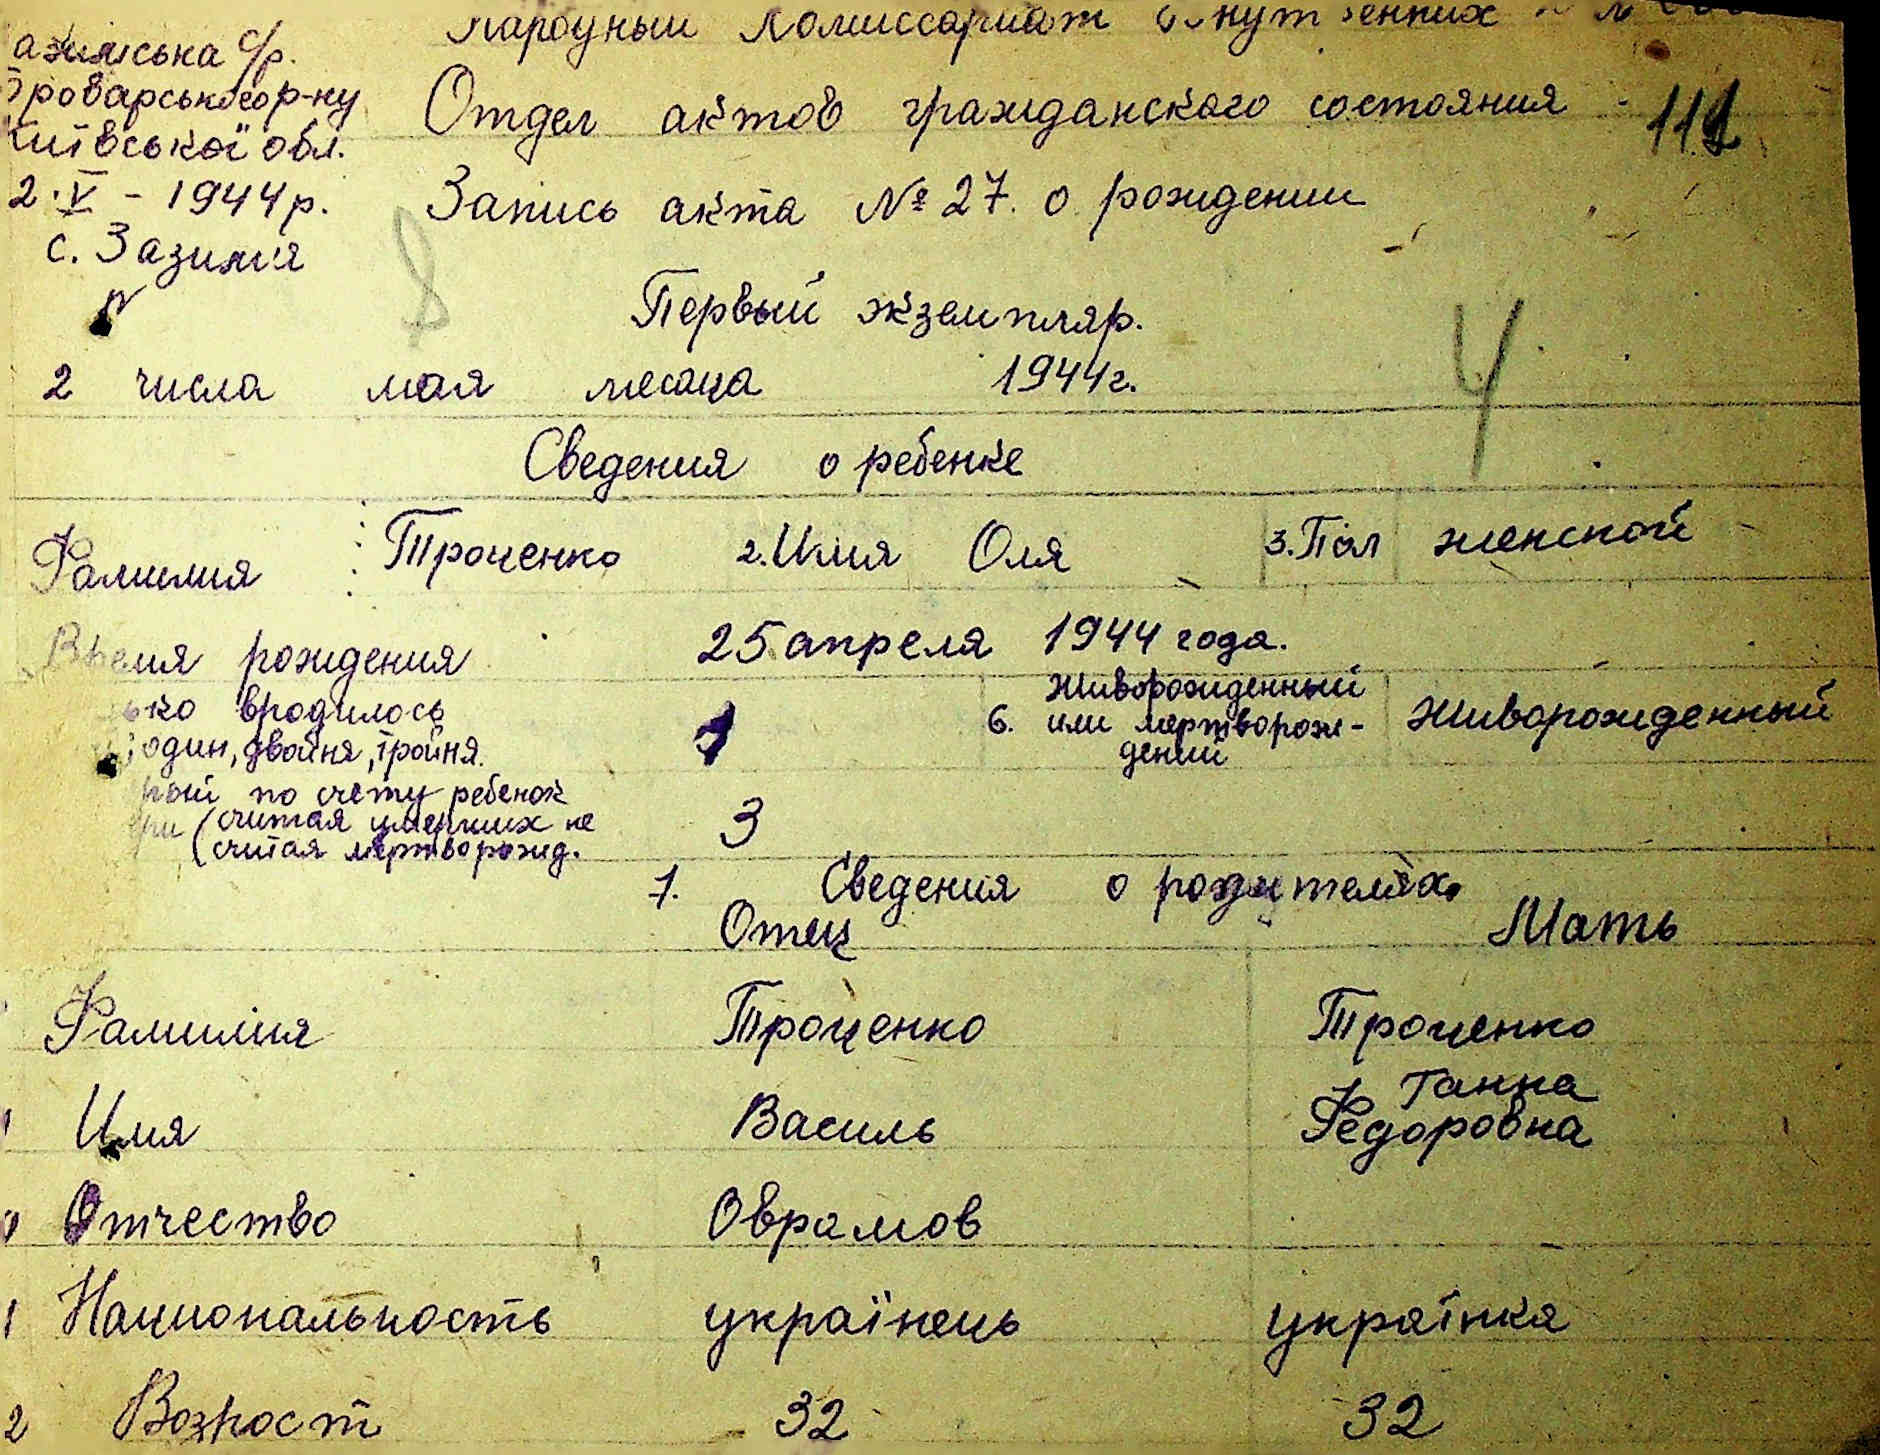 Народный Комиссариат
Зазимська с/р.
Броварського р-ну
Київської обл.
2.V - 1944 р.
с. Зазим'я
Отдел актов гражданского состояния - 111
Запись акта № 27. о рождении
8
Первый экземпляр.
4
2 числа мая месяца 1944 г.
Сведения о ребенке
Фамилия Троценко 2. Имя Оля 3. Пол женской
Время рождения 25 апреля 1944 года.
ько вродилось
один, двойня, тройня. 1 6. Живорожденный или мертворожденый Живорожденный
рый по счету ребенок
ери (считая умерших не 3
(считая мертворожд.
7. Сведения о родителях.
Отец Мать
Фамилия Троценко Троценко
Имя Василь Ганна Федоровна
Отчество Оврамов
Национальность українець українка
2 Возрост 32 32